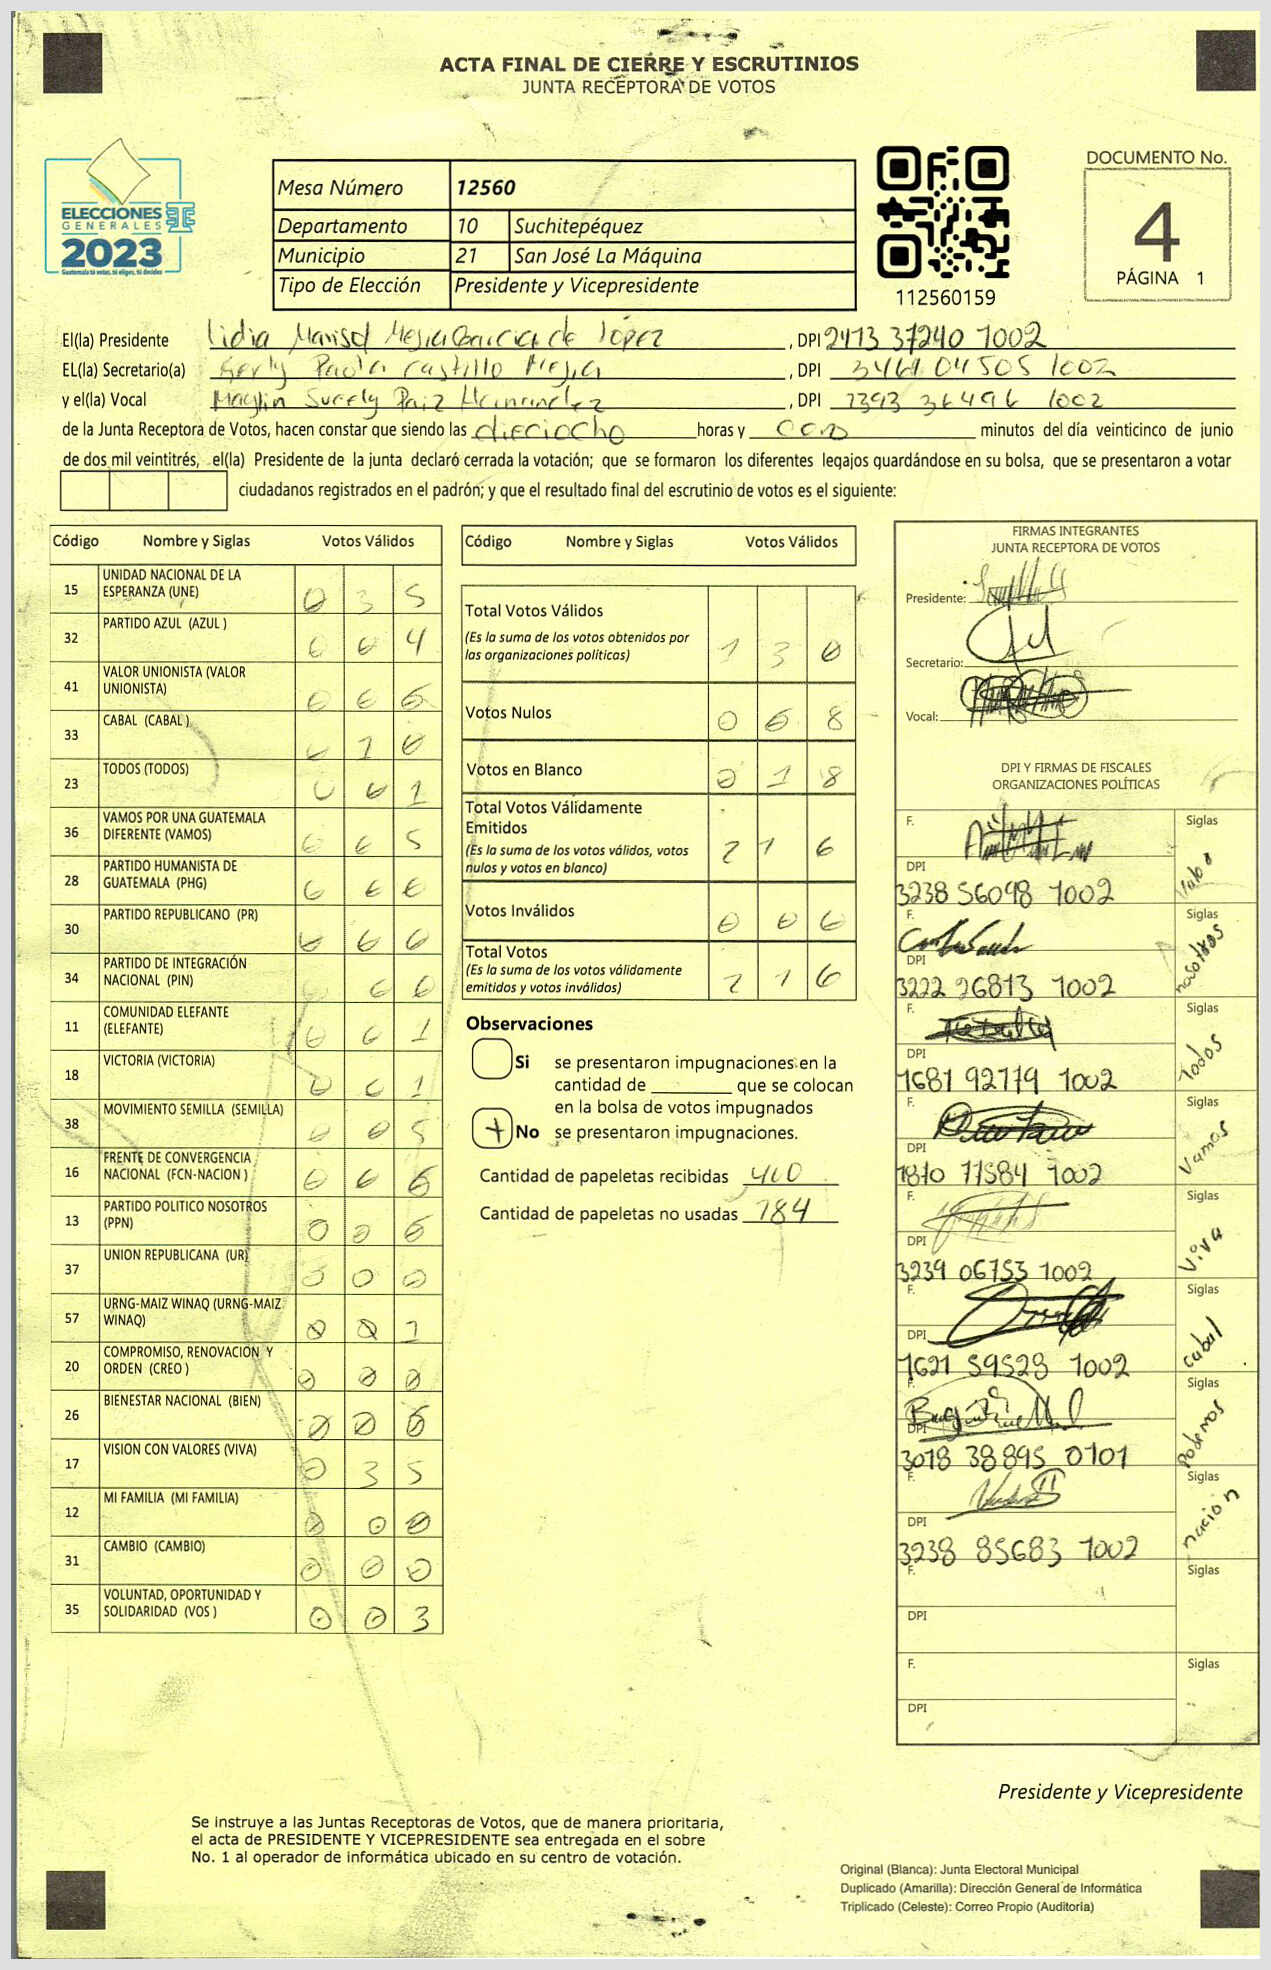 ACTA FINAL DE CIERRE Y ESCRUTINIOS
JUNTA RECEPTORA DE VOTOS
ELECCIONES
GENERALES
2023
Guatemala tú votas, tú eliges, tú decides
Mesa Número 12560
Departamento 10 Suchitepéquez
Municipio 21 San José La Máquina
Tipo de Elección Presidente y Vicepresidente
112560159
DOCUMENTO No.
4
PÁGINA 1
El(la) Presidente Lidia Marisol Mejia Garcia de López, DPI 2413 37240 1002
EL(la) Secretario(a) Gerly Paola Castillo Mejia, DPI 3461 04505 1002
y el(la) Vocal Maylin Surely Paiz Hernandez, DPI 2393 36496 1002
de la Junta Receptora de Votos, hacen constar que siendo las dieciocho horas y cero minutos del día veinticinco de junio
de dos mil veintitrés, el(la) Presidente de la junta declaró cerrada la votación; que se formaron los diferentes legajos guardándose en su bolsa, que se presentaron a votar
ciudadanos registrados en el padrón; y que el resultado final del escrutinio de votos es el siguiente:
Código Nombre y Siglas Votos Válidos
15 UNIDAD NACIONAL DE LA ESPERANZA (UNE) 0 3 5
32 PARTIDO AZUL (AZUL ) 0 0 4
41 VALOR UNIONISTA (VALOR UNIONISTA)
33 CABAL (CABAL ) 0 1 0
23 TODOS (TODOS) 0 0 1
36 VAMOS POR UNA GUATEMALA DIFERENTE (VAMOS)
28 PARTIDO HUMANISTA DE GUATEMALA (PHG) 0 0 0
30 PARTIDO REPUBLICANO (PR) 0 0 0
34 PARTIDO DE INTEGRACIÓN NACIONAL (PIN) 0 0
11 COMUNIDAD ELEFANTE (ELEFANTE) 0 0 1
18 VICTORIA (VICTORIA) 0 0 1
38 MOVIMIENTO SEMILLA (SEMILLA) 0 0 5
16 FRENTE DE CONVERGENCIA NACIONAL (FCN-NACION )
13 PARTIDO POLITICO NOSOTROS (PPN) 0 0 6
37 UNION REPUBLICANA (UR) 0 0 0
57 URNG-MAIZ WINAQ (URNG-MAIZ WINAQ) 0 0 1
20 COMPROMISO, RENOVACION Y ORDEN (CREO ) 0 0 0
26 BIENESTAR NACIONAL (BIEN) 0 0 6
17 VISION CON VALORES (VIVA) 0 3 5
12 MI FAMILIA (MI FAMILIA) 0 0 0
31 CAMBIO (CAMBIO) 0 0 0
35 VOLUNTAD, OPORTUNIDAD Y SOLIDARIDAD (VOS ) 0 0 3
Código Nombre y Siglas Votos Válidos
Total Votos Válidos 1 3 0
(Es la suma de los votos obtenidos por
las organizaciones políticas)
Votos Nulos 0 6 8
Votos en Blanco 0 1 8
Total Votos Válidamente
Emitidos 2 1 6
(Es la suma de los votos válidos, votos
nulos y votos en blanco)
Votos Inválidos 0 0 0
Total Votos 2 1 6
(Es la suma de los votos válidamente
emitidos y votos inválidos)
Observaciones
Si se presentaron impugnaciones en la
cantidad de ________ que se colocan
en la bolsa de votos impugnados
+ No se presentaron impugnaciones.
Cantidad de papeletas recibidas 400
Cantidad de papeletas no usadas 184
FIRMAS INTEGRANTES
JUNTA RECEPTORA DE VOTOS
Presidente:
Secretario:
Vocal:
DPI Y FIRMAS DE FISCALES
ORGANIZACIONES POLÍTICAS
F. Siglas Valor
DPI
3238 56098 1002
F. Siglas nosotros
DPI
3222 26813 1002
F. Siglas Todos
DPI
1681 92779 1002
F. Siglas Vamos
DPI
1810 77584 1002
F. Siglas Viva
DPI
3239 06753 1002
F. Siglas cabal
DPI
1621 59528 1002
F. Siglas Podemos
DPI
3018 38895 0101
F. Siglas nacion
DPI
3238 85683 1002
F. Siglas
DPI
F. Siglas
DPI
Presidente y Vicepresidente
Se instruye a las Juntas Receptoras de Votos, que de manera prioritaria,
el acta de PRESIDENTE Y VICEPRESIDENTE sea entregada en el sobre
No. 1 al operador de informática ubicado en su centro de votación.
Original (Blanca): Junta Electoral Municipal
Duplicado (Amarilla): Dirección General de Informática
Triplicado (Celeste): Correo Propio (Auditoría)